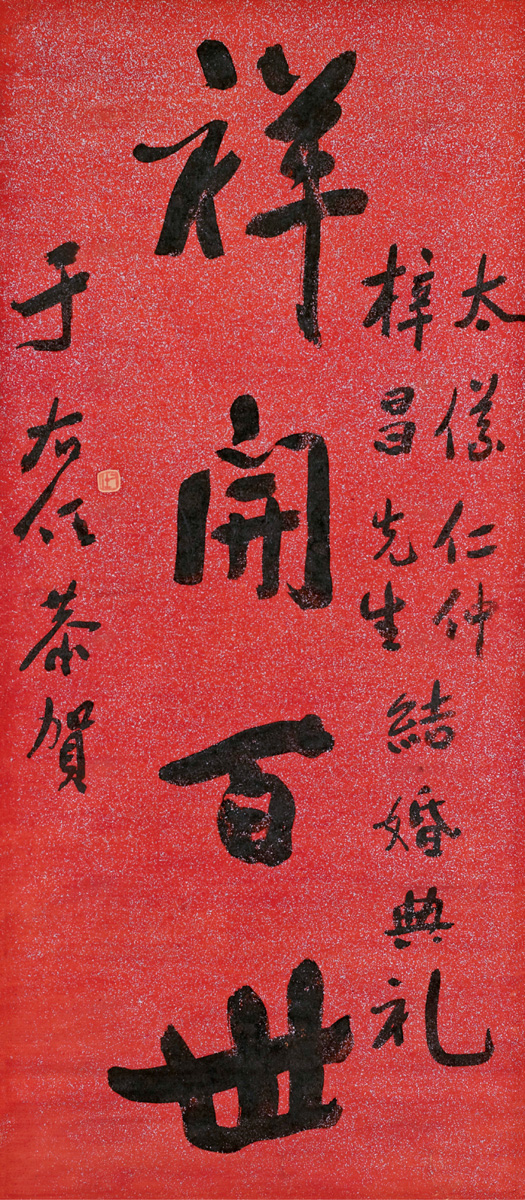 太儀仁仲
梓昌先生
結婚典礼
祥開百世
于右任恭賀